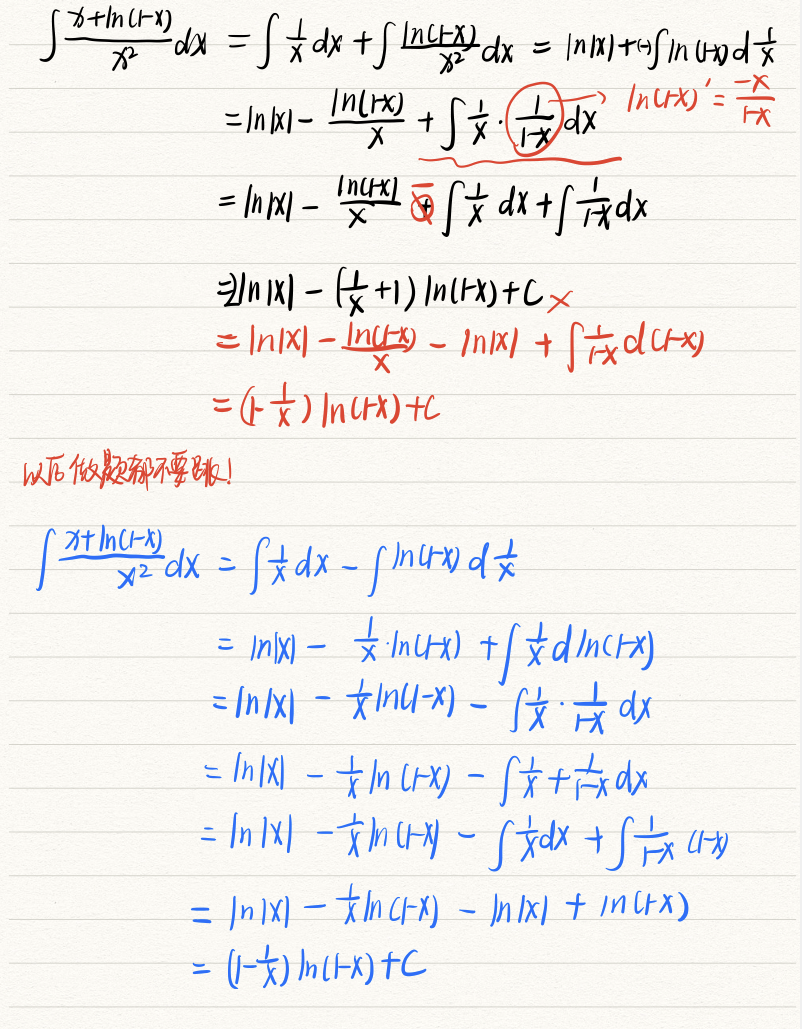 ∫ (x+ln(1-x))/x² dx = ∫ 1/x dx + ∫ ln(1-x)/x² dx = ln|x| + (-)∫ ln(1-x) d 1/x
= ln|x| - ln(1-x)/x + ∫ 1/x · 1/(1-x) dx → ln(1-x)' = -x/(1-x)
= ln|x| - ln(1-x)/x + - ∫ 1/x dx + ∫ 1/(1-x) dx
= 2ln|x| - (1/x + 1) ln(1-x) + C ×
= ln|x| - ln(1-x)/x - ln|x| + ∫ 1/(1-x) d(1-x)
= (1 - 1/x) ln(1-x) + C
以后做题都不要跳!
∫ (x+ln(1-x))/x² dx = ∫ 1/x dx - ∫ ln(1-x) d 1/x
= ln|x| - 1/x · ln(1-x) + ∫ 1/x d ln(1-x)
= ln|x| - 1/x ln(1-x) - ∫ 1/x · 1/(1-x) dx
= ln|x| - 1/x ln(1-x) - ∫ 1/x + 1/(1-x) dx
= ln|x| - 1/x ln(1-x) - ∫ 1/x dx + ∫ 1/(1-x) (1-x)
= ln|x| - 1/x ln(1-x) - ln|x| + ln(1-x)
= (1 - 1/x) ln(1-x) + C